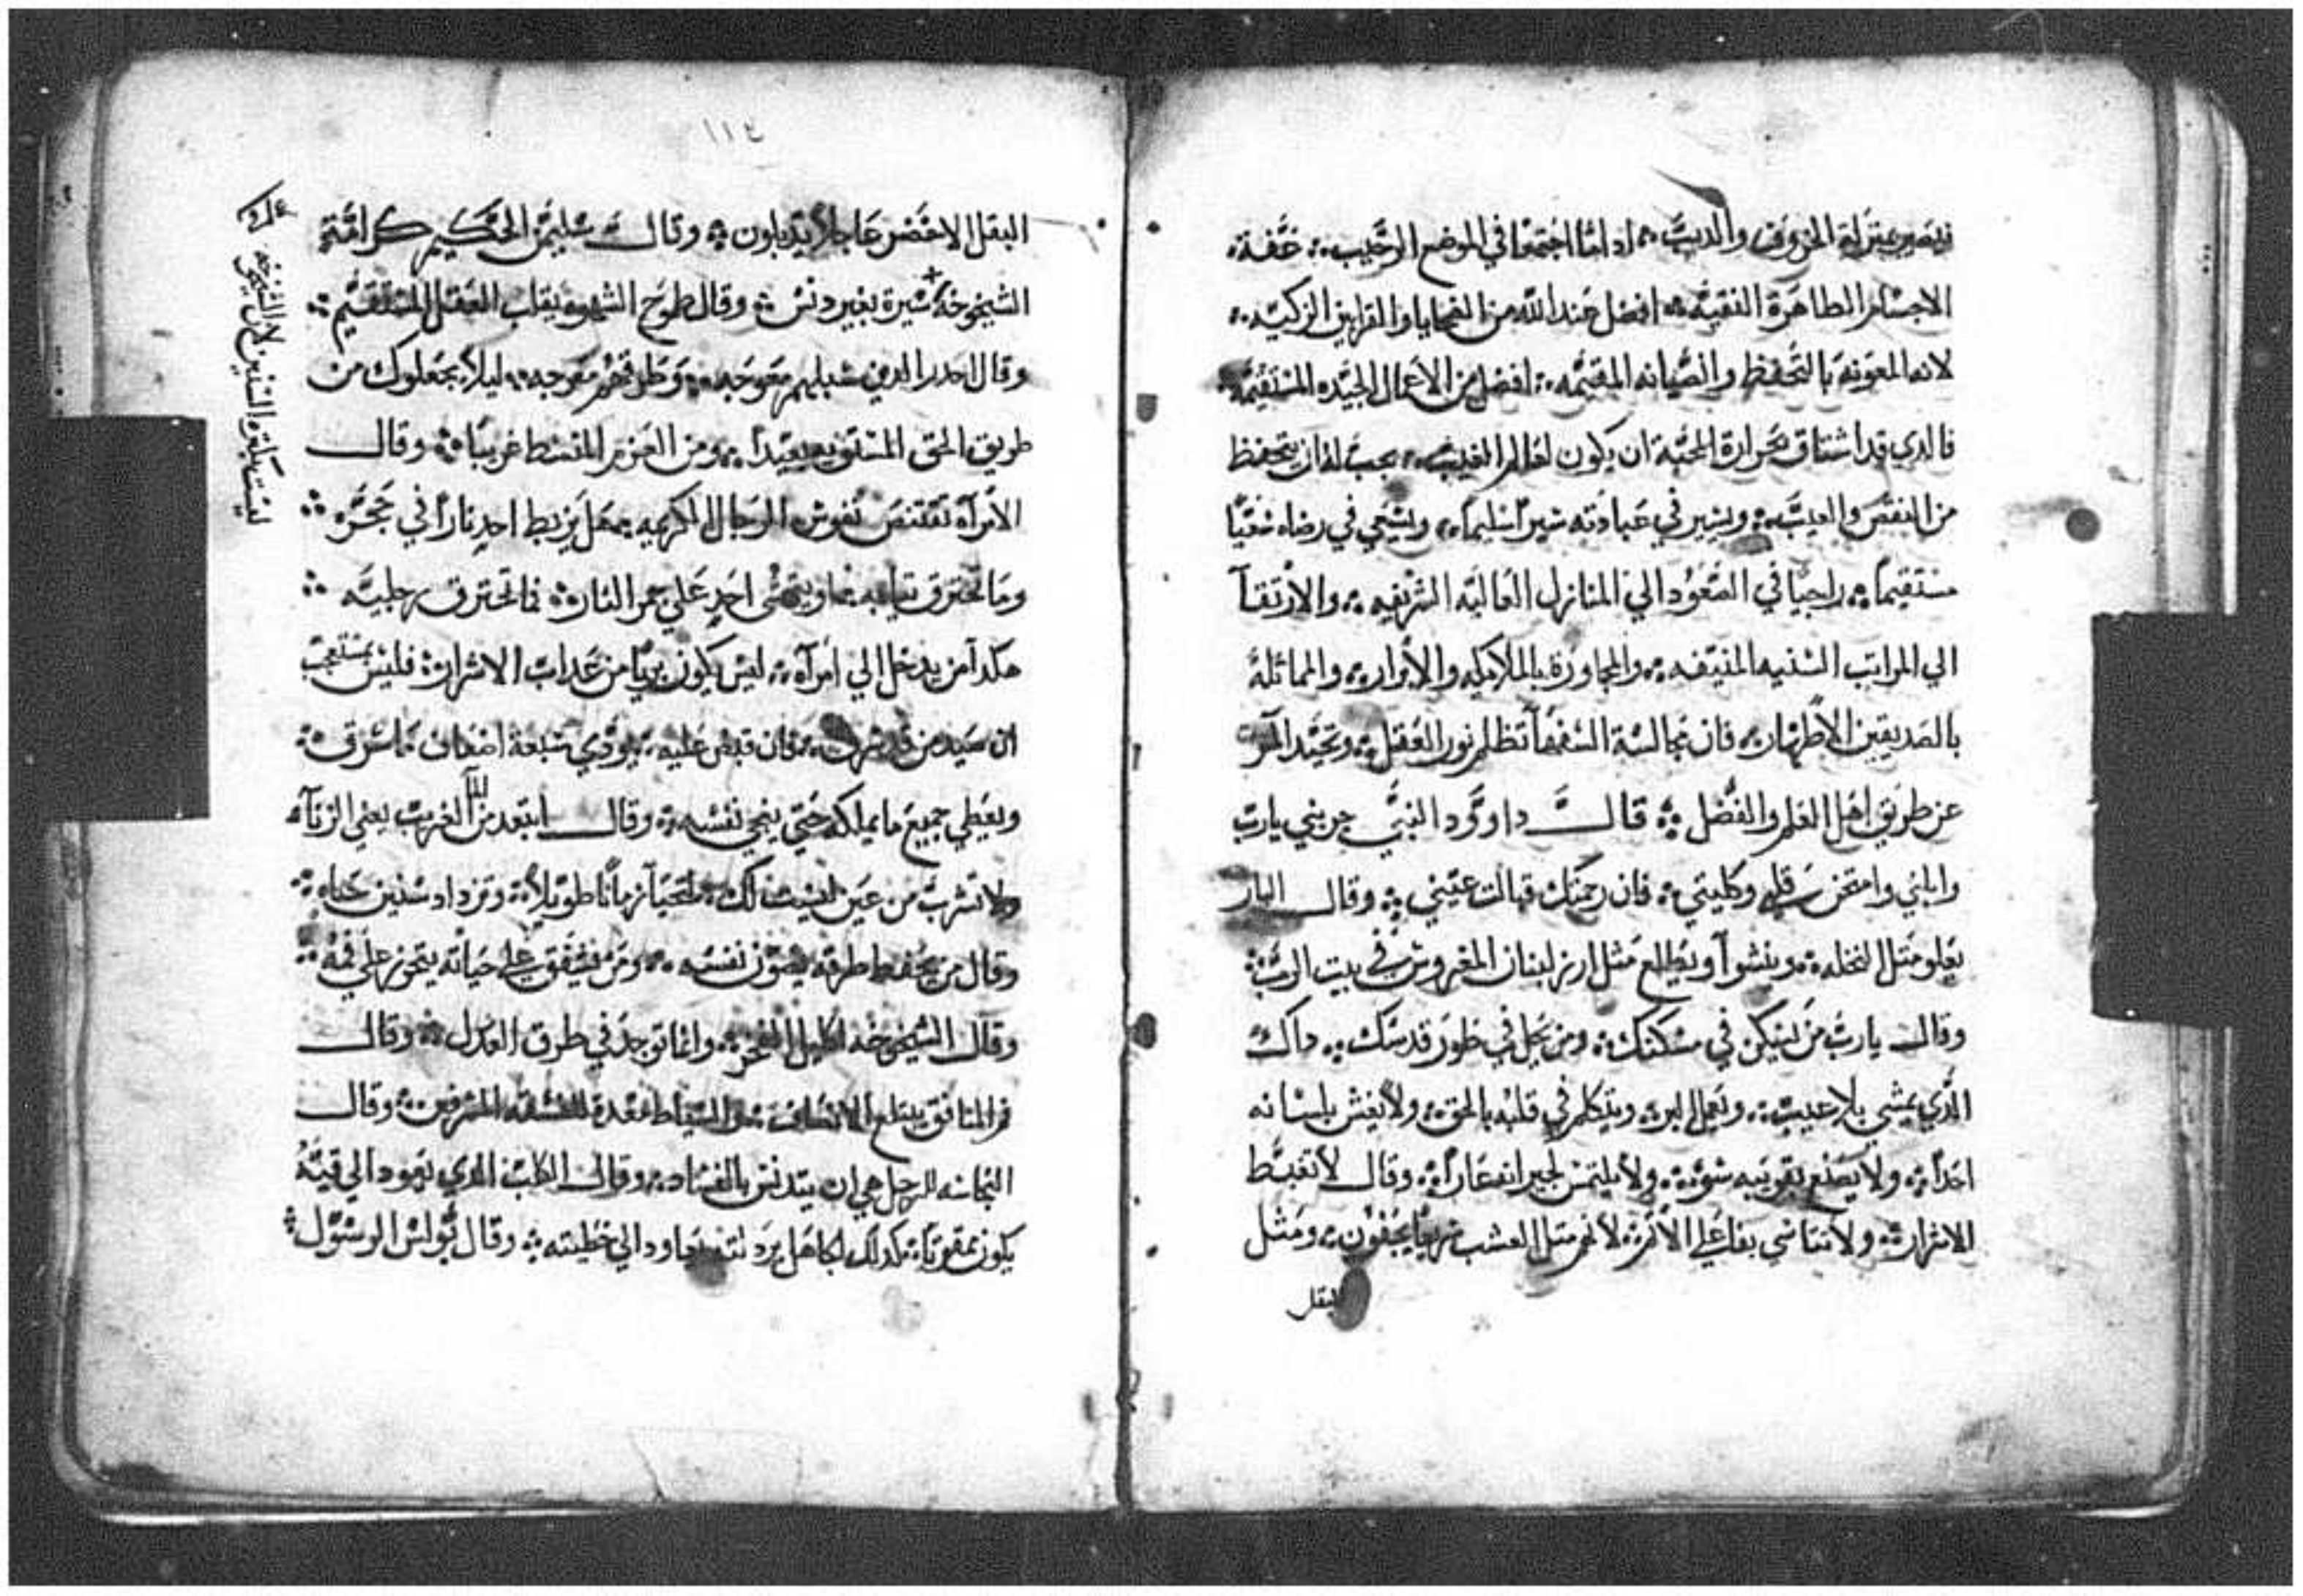 فيصير بمنزلة الخروف والديب ❖ اد لما اجتمعا في الموضع الرحيب ❖ عفة
الاجسام الطاهرة النقيه ❖ افضل عند الله من الضحايا والقرابين الزكيه ❖
لانه المعونه بالتحفظ والصيانه المقيمه ❖ افضل من الاعمال الجيده المستقيمه
فالدي قد اشتاق بحرارة المحبة ان يكون لعالم الغيب ❖ يجب له ان يتحفظ
من النقص والعيب ❖ ويسير في عبادته سيراً سليماً ❖ ويسعي في رضاه سعياً
مستقيماً ❖ راجياً في الصعود الي المنازل العاليه الشريفه ❖ والارتقآ
الي المراتب السنيه المنيفه ❖ والمجاورة بالملايكه والابرار ❖ والمماثلة
بالصديقين الاطهار ❖ فان مجالسة السفهآ تظلم نور العقل ❖ وتحيد المر
عن طريق اهل العلم والفضل ❖ قال داوود النبي جربني يارب
وابلني وامتحن قلبي وكليتي ❖ فان رحمتك قبالت عيني ❖ وقال البار
يعلو مثل النخله ❖ وينشوا ويطلع مثل ارز لبنان المغروس في بيت الرب ❖
وقال يارب من يسكن في مسكنك ❖ ومن يحل في طور قدسك ❖ داك
الدي يمشي بلا عيب ❖ ويعمل البر ❖ ويتكلم في قلبه بالحق ❖ ولا يغش بلسانه
احداً ❖ ولا يصنع بقريبه سوء ❖ ولا يلتمس لجيرانه عاراً ❖ وقال لا تغبط
الاشرار ❖ ولا تتاسي بفاعلي الاثم ❖ لانهم مثل العشب سريعاً يجفون ❖ ومثل
البقل
١١٤
البقل الاخضر عاجلاً يدبلون ❖ وقال سليمن الحكيم كرامة
الشيخوخه + سيرة بغير دنس ❖ وقال طموح الشهوه يقلب العقل المستقيم ❖
وقال احدر الدين سبلهم معوجه ❖ وطرقهم معوجه ❖ ليلا يجعلوك من
طريق الحق المستوي بعيداً ❖ ومن العزم المقسط غريباً ❖ وقال
الامرآه تقتنص نفوس الرجال الكريمه ❖ هل يربط احد ناراً في حجره ❖
وما تحترق تيابه ❖ او يمشي احد علي جمر النار ❖ فما تحترق رجليه ❖
هكدا من يدخل الي امرآه ❖ ليس يكون بريا من عداب الاشرار ❖ فليس بمستعجب
ان صيد من قد سرق ❖ فان قبض عليه ❖ يودي سبعة اضعاف ما سرق ❖
ويعطي جميع ما يملكه حتي ينجي نفسه ❖ وقال ابتعد من المآ الغريب يعني الزناه
ولا تشرب من عين ليست لك ❖ لتحيا زماناً طويلاً ❖ وتزداد سنين حياه ❖
وقال من يحفظ طرقه يصون نفسه ❖ ومن يشفق علي حياته يتحرز علي فمه ❖
وقال الشيخوخه اكليل الفخر ❖ وانما توجد في طرق العدل ❖ وقال
فم المنافق يبتلع الانصاف ❖ السياط معدة للفسقه المسرفين ❖ وقال
النجاسه للرجل هي ان يتدنس بالفساد ❖ وقال الكلب الدي يعود الي قيئه
يكون ممقوتا ❖ كدلك الجاهل يرد لنفسه ويعاود الي خطيته ❖ وقال بولس الرسول ❖
ليست بكثره السنين لان الشيخوخه